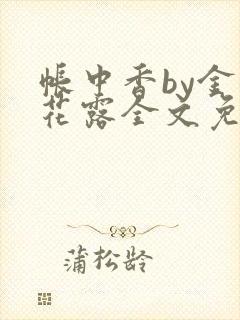 帐中香by金
花露全文免
蒲松龄